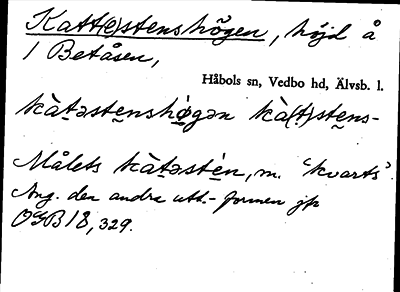 Katt(e)stenshögen, höjd å
1 Betåsen,
Håbols sn, Vedbo hd, Älvsb. l.
kàt̠əstenshø̀gən kà(t̠)stens-
Målets kàt̠əstén, m. ‘kvarts’.
Ang. den andra utt.-formen jfr
OGB 18, 329.